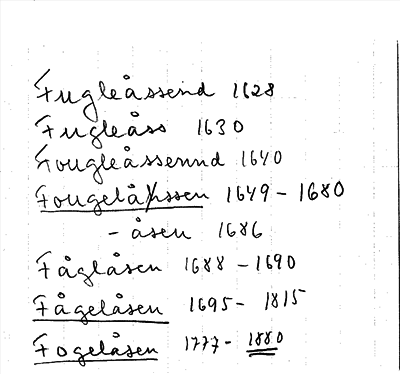 Fugleåssend 1628
Fugleåss 1630
Fougleåssennd 1640
Fougelåssen 1649 - 1680
- åsen 1686
Fåglåsen 1688 - 1690
Fågelåsen 1695 - 1815
Fogelåsen 1777 - 1880